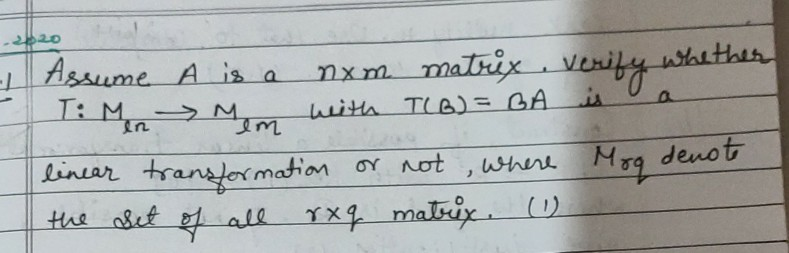 .2020
.1 Assume A is a n×m matrix. Verify whether
T: M_{ln} → M_{lm} with T(B) = BA is a
linear transformation or not, where M_{rq} denote
the set of all r×q matrix. (1)